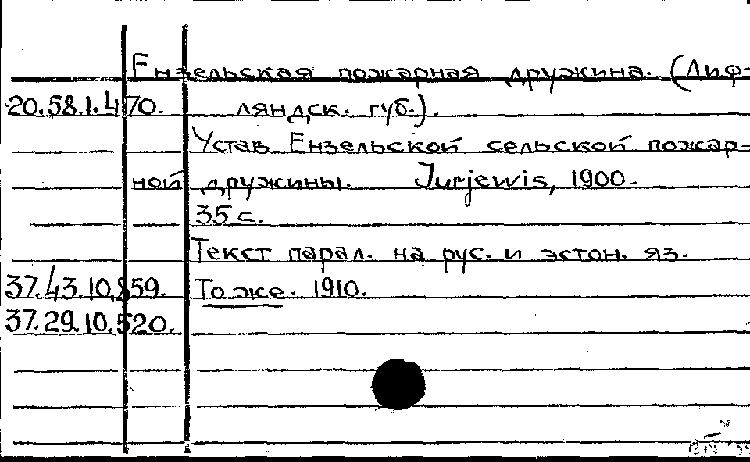 Ензельская пожарная дружина. (Лиф-
20.58.1.470. ляндск. губ.).
Устав Ензельской сельской пожар-
ной дружины. Jurjewis, 1900.
35 с.
Текст парал. на рус. и эстон. яз.
37.43.10.859. То же. 1910.
37.29.10.520.